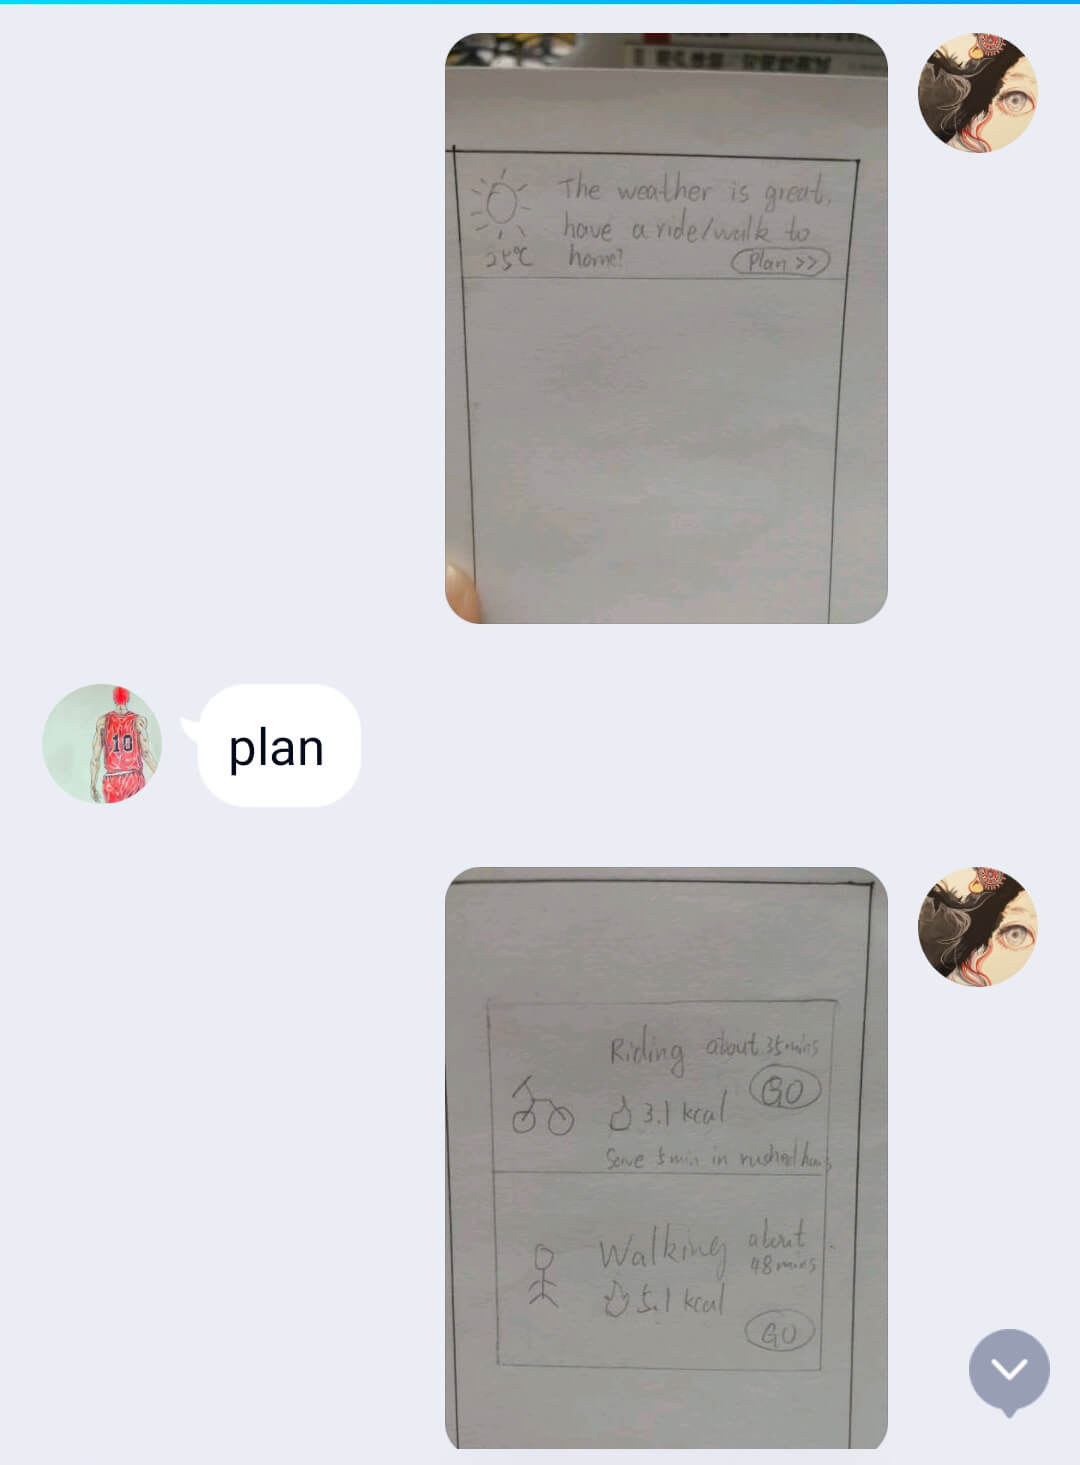 The weather is great,
have a ride/walk to
home?
25℃
Plan >>
10
plan
Riding about 35mins
GO
3.1 kcal
Save 5min in rushed hours
Walking about
48mins
5.1 kcal
GO